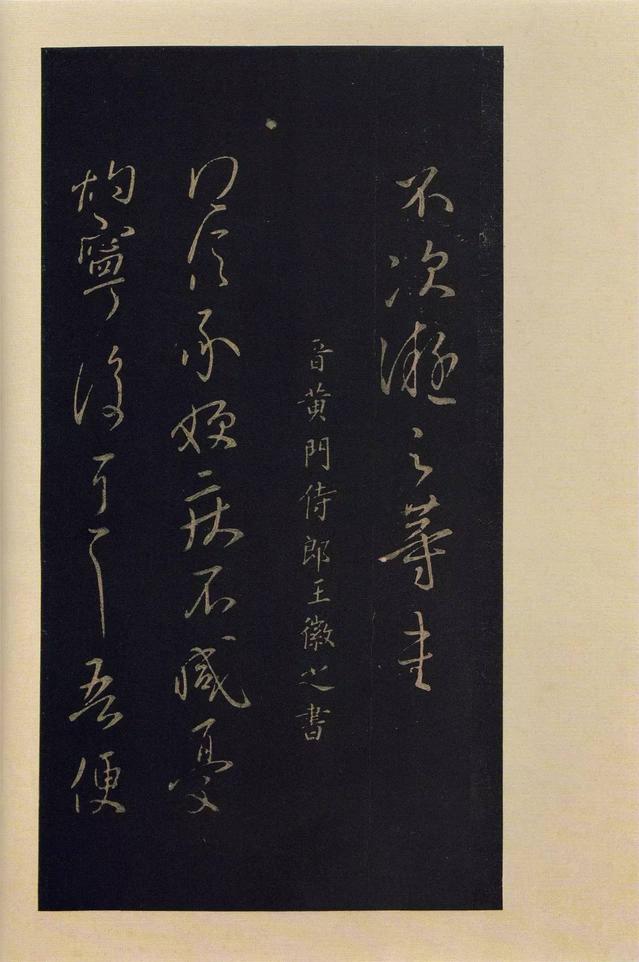 不次凝之等書
晉黃門侍郎王徽之書
得信承嫂疾不減憂
灼寧復可言吾便